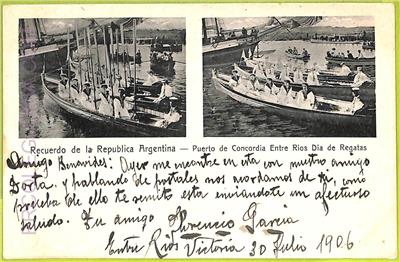 Recuerdo de la Republica Argentina — Puerto de Concordia Entre Rios Dia de Regatas
Amigo Benavides: Ayer me encontre en esta con nuestro amigo
Dorta, y hablando de postales nos acordamos de ti, como
prueba de ello te remito esta enviandote un afectuoso
saludo. Tu amigo Florencio Garcia
Entre Rios Victoria 30 Julio 1906